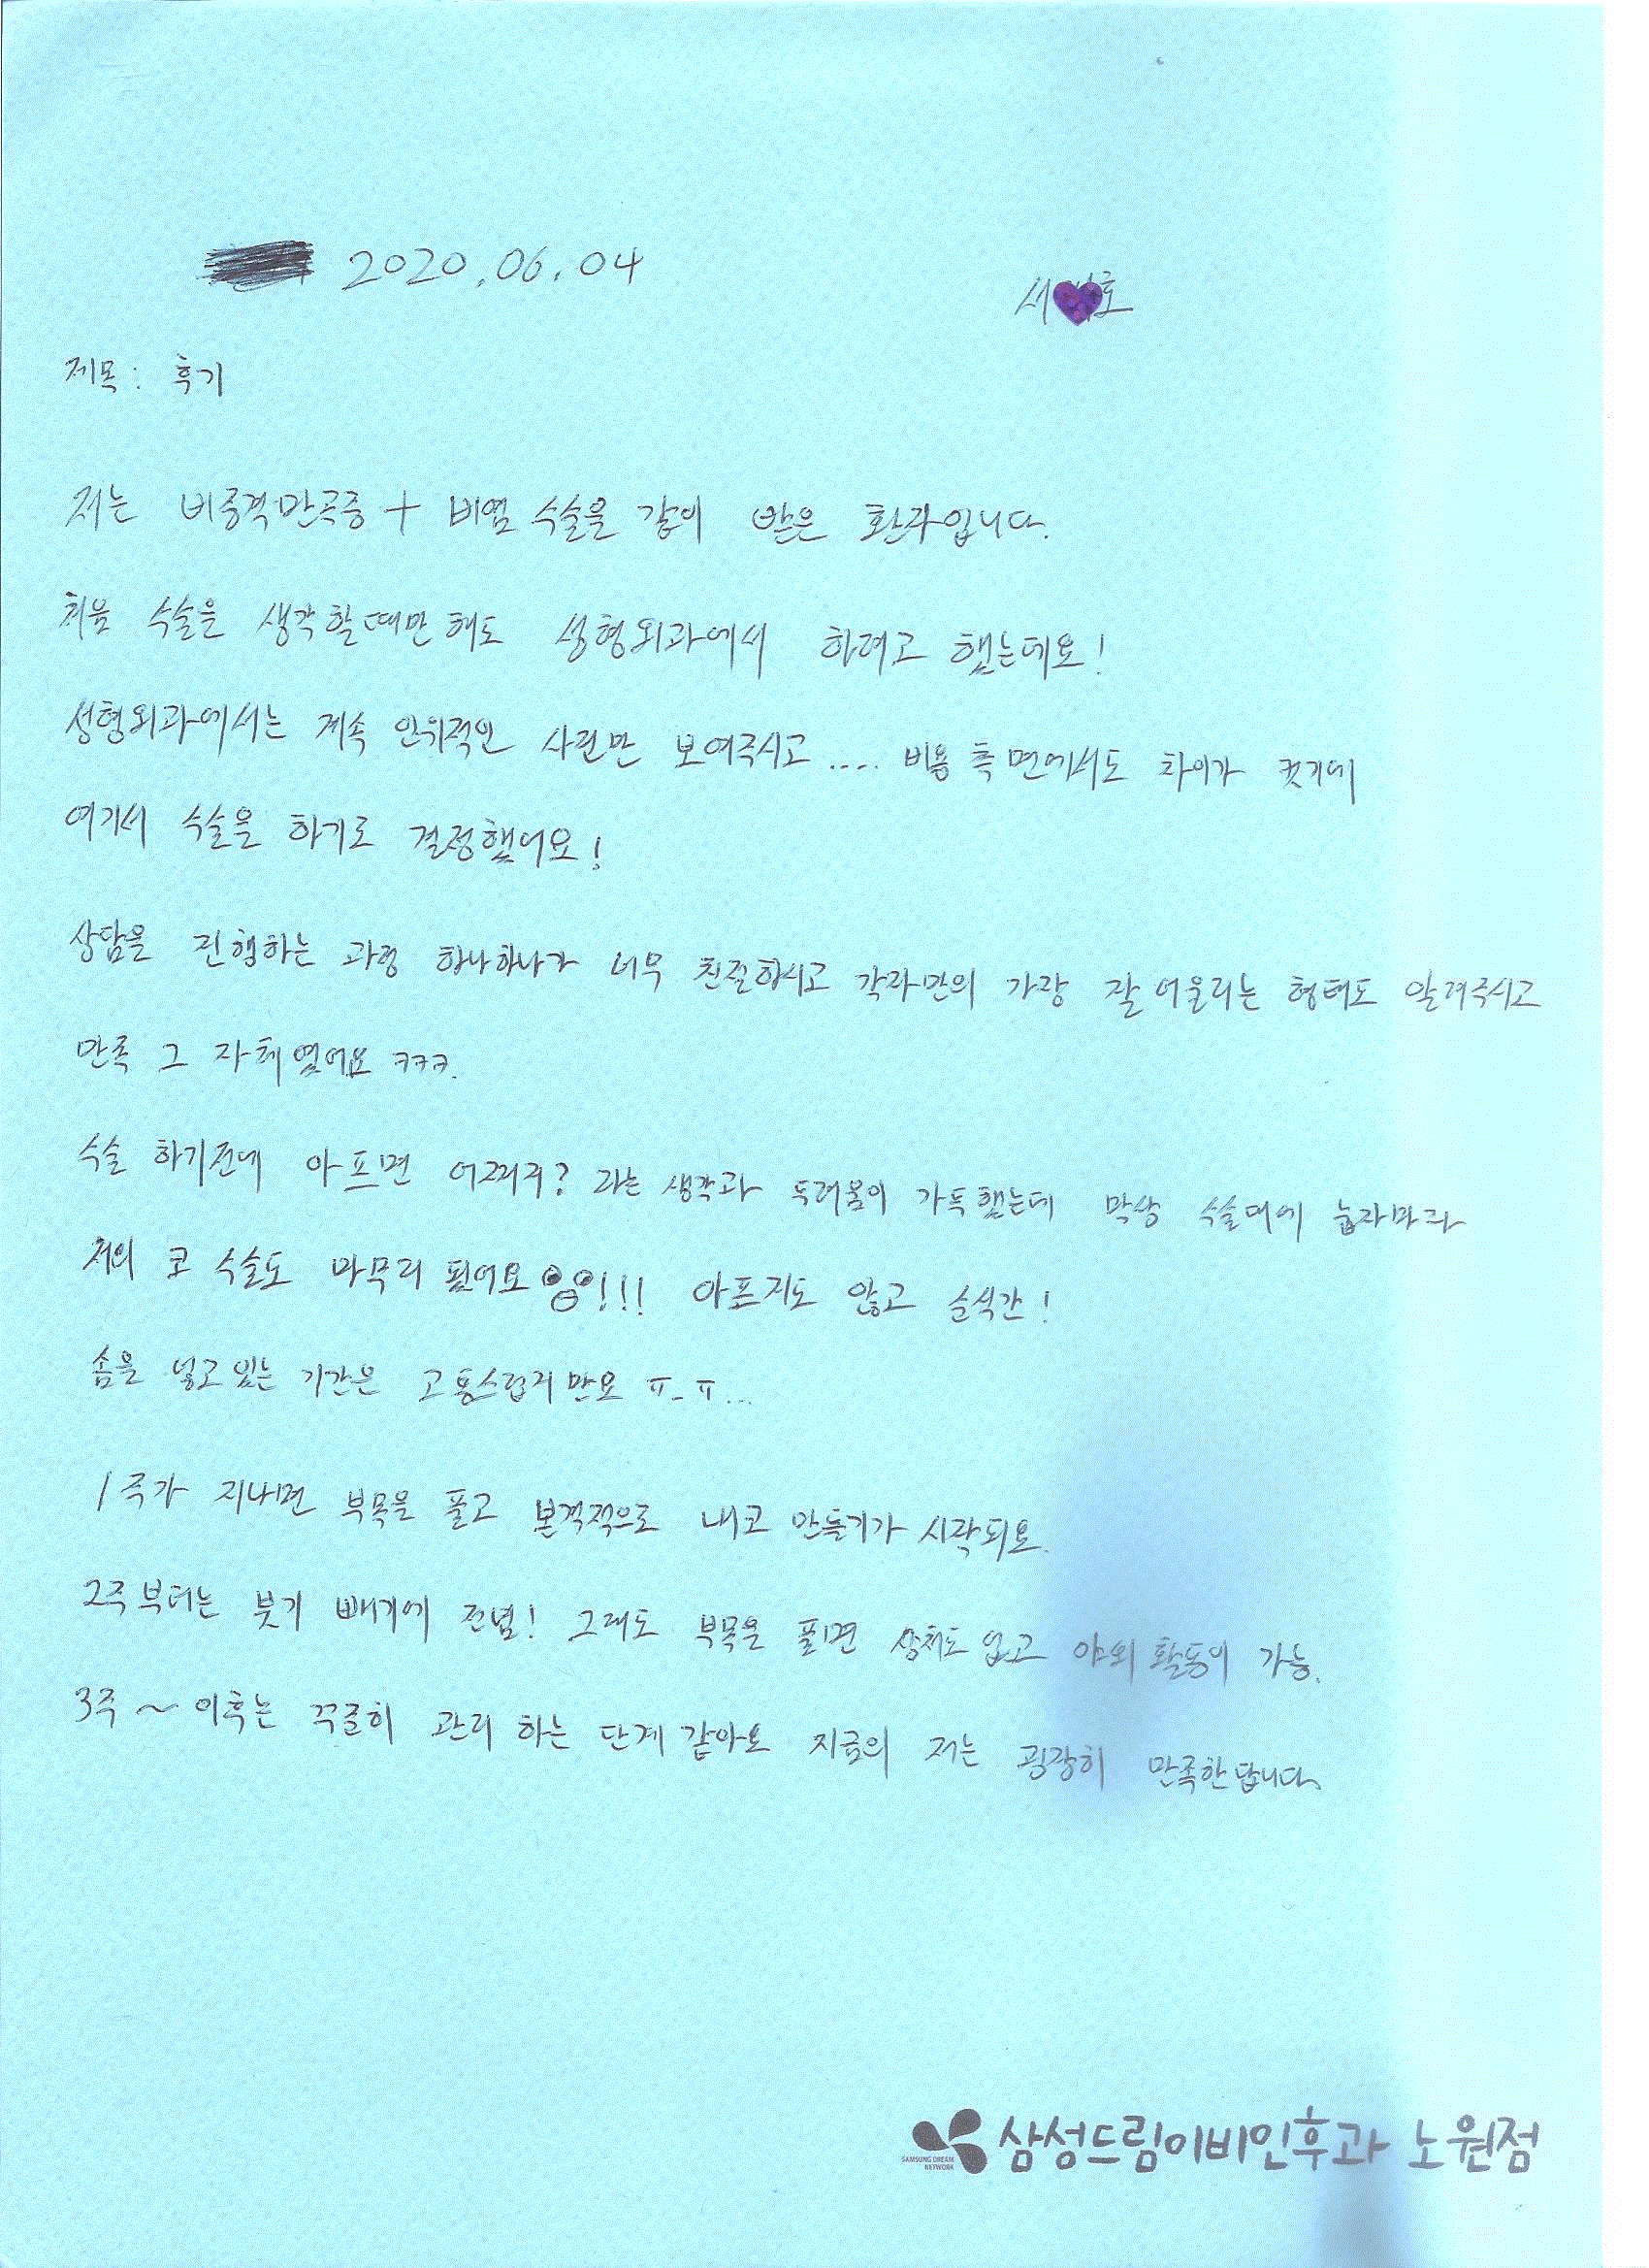 2020.06.04
서 호
제목: 후기
저는 비중격만곡증 + 비염 수술을 같이 받은 환자입니다.
처음 수술을 생각할때만 해도 성형외과에서 하려고 했는데요!
성형외과에서는 계속 인위적인 사진만 보여주시고.... 비용 측면에서도 차이가 컷기에
여기서 수술을 하기로 결정했어요!
상담을 진행하는 과정 하나하나가 너무 친절하시고 각자만의 가장 잘 어울리는 형태도 알려주시고
만족 그 자체였어요 ㅋㅋㅋ.
수술 하기전에 아프면 어쩌지? 라는 생각과 두려움이 가득했는데 막상 수술대에 눕자마자
저의 코 수술도 마무리 됬어요!!! 아프지도 않고 순식간!
솜을 넣고 있는 기간은 고통스럽지만요 ㅠ_ㅠ...
1주가 지나면 부목을 풀고 본격적으로 내코 만들기가 시작되요.
2주부터는 붓기 빼기에 전념! 그래도 부목을 풀면 상처도 없고 야외 활동이 가능.
3주~이후는 꾸준히 관리 하는 단계 같아요 지금의 저는 굉장히 만족한답니다.
SAMSUNG DREAM NETWORK
삼성드림이비인후과 노원점